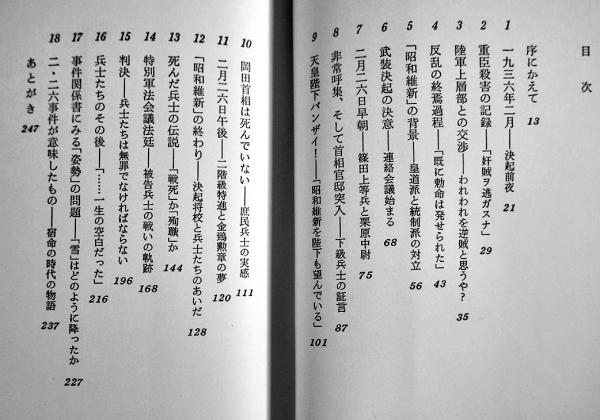 目次
序にかえて 13
1 一九三六年二月——決起前夜 21
2 重臣殺害の記録——「奸賊ヲ逃ガスナ」 29
3 陸軍上層部との交渉——われわれを逆賊と思うや? 35
4 反乱の終焉過程——「既に勅命は発せられた」 43
5 「昭和維新」の背景——皇道派と統制派の対立 56
6 武装決起の決意——連絡会議始まる 68
7 二月二六日早朝——篠田上等兵と栗原中尉 75
8 非常呼集、そして首相官邸突入——下級兵士の証言 87
9 天皇陛下バンザイ!——「昭和維新を陛下も望んでいる」 101
10 岡田首相は死んでいない——庶民兵士の実感 111
11 二月二六日午後——二階級特進と金鵄勲章の夢 120
12 「昭和維新」の終わり——決起将校と兵士たちのあいだ 128
13 死んだ兵士の伝説——「戦死」か「殉職」か 144
14 特別軍法会議法廷——被告兵士の戦いの軌跡 168
15 判決——兵士たちは無罪でなければならない 196
16 兵士たちのその後——「……一生の空白だった」 216
17 事件関係書にみる「姿勢」の問題——「雪」はどのように降ったか 227
18 二・二六事件が意味したもの——宿命の時代の物語 237
あとがき 247